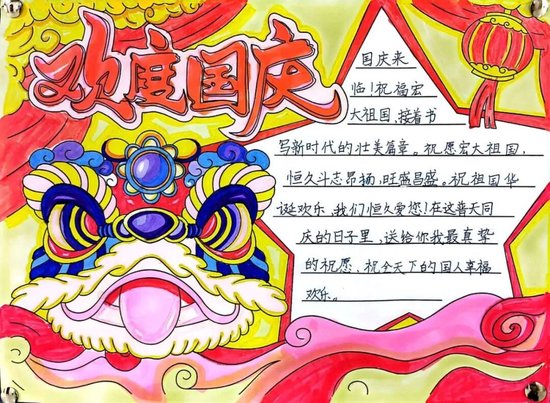 欢度国庆
国庆来
临！祝福宏
大祖国，接着书
写新时代的壮美篇章。祝愿宏大祖国，
恒久斗志昂扬，旺盛昌盛。祝祖国华
诞欢乐，我们恒久爱您！在这普天同
庆的日子里，送给你我最真挚
的祝愿，祝全天下的国人幸福
欢乐。